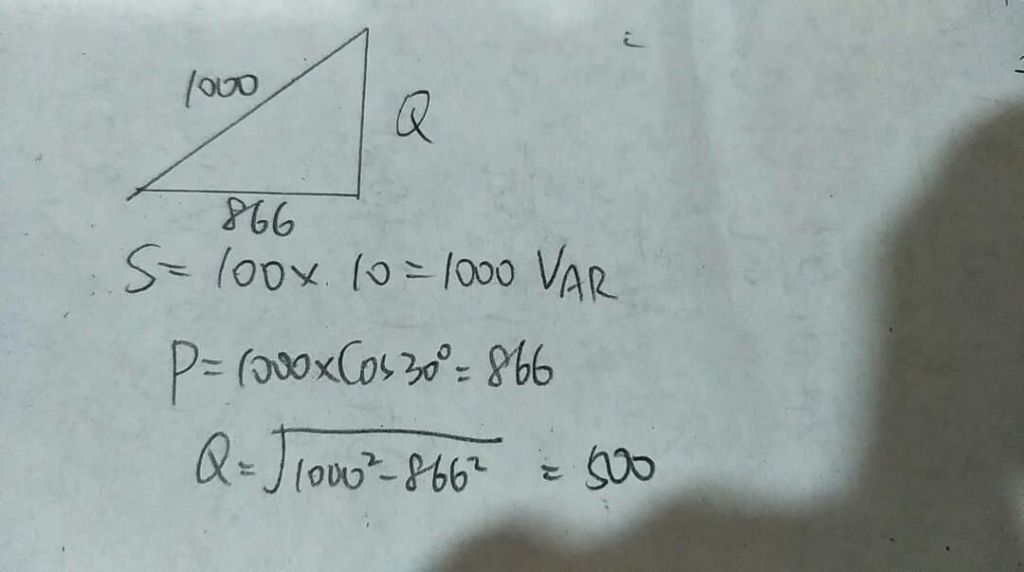 1000
Q
866
S= 100x. 10=1000 VAR
P=1000xCos30°=866
Q=√1000²-866² = 500